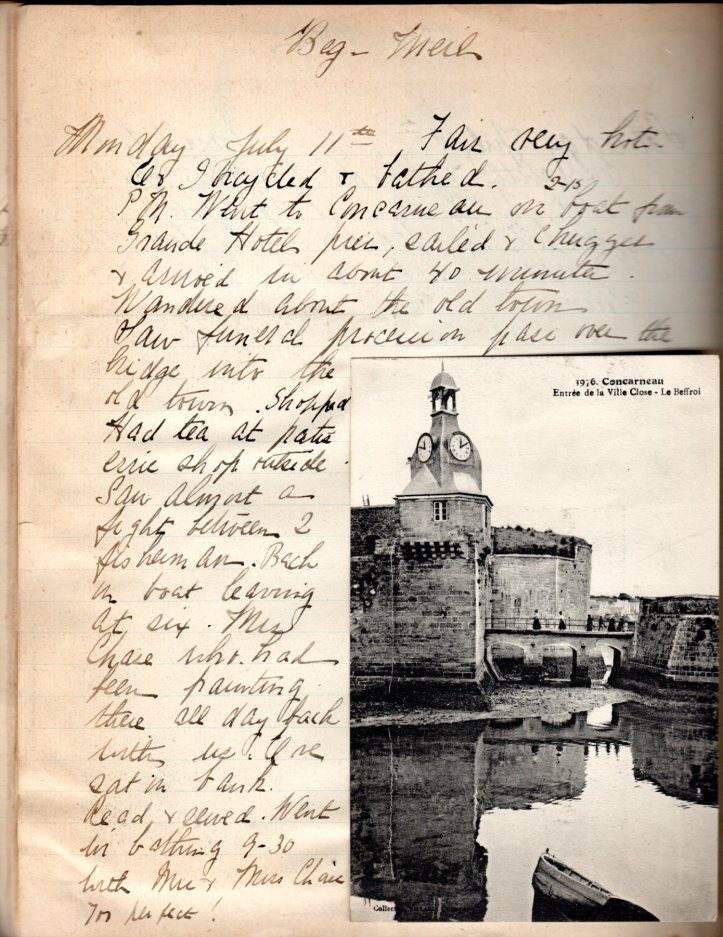 Beg-Meil
Monday July 11th Fair very hot.
I bicycled & bathed. 2-15
P.M. Went to Concarneau on boat from
Grande Hotel pier, sailed & chugged
& arrived in about 40 minutes.
Wandered about the old town
Saw funeral procession pass over the
bridge into the
old town. Shopped
Had tea at patis
erie shop outside.
Saw almost a
fight between 2
fisherman. Back
in boat leaving
at six. Miss
Chase who had
been painting
there all day back
with us. Eve
sat in bank.
Read, & sewed. Went
in bathing 9-30
with Mr & Miss Chase
Too perfect!
3976. Concarneau
Entrée de la Ville Close - Le Beffroi